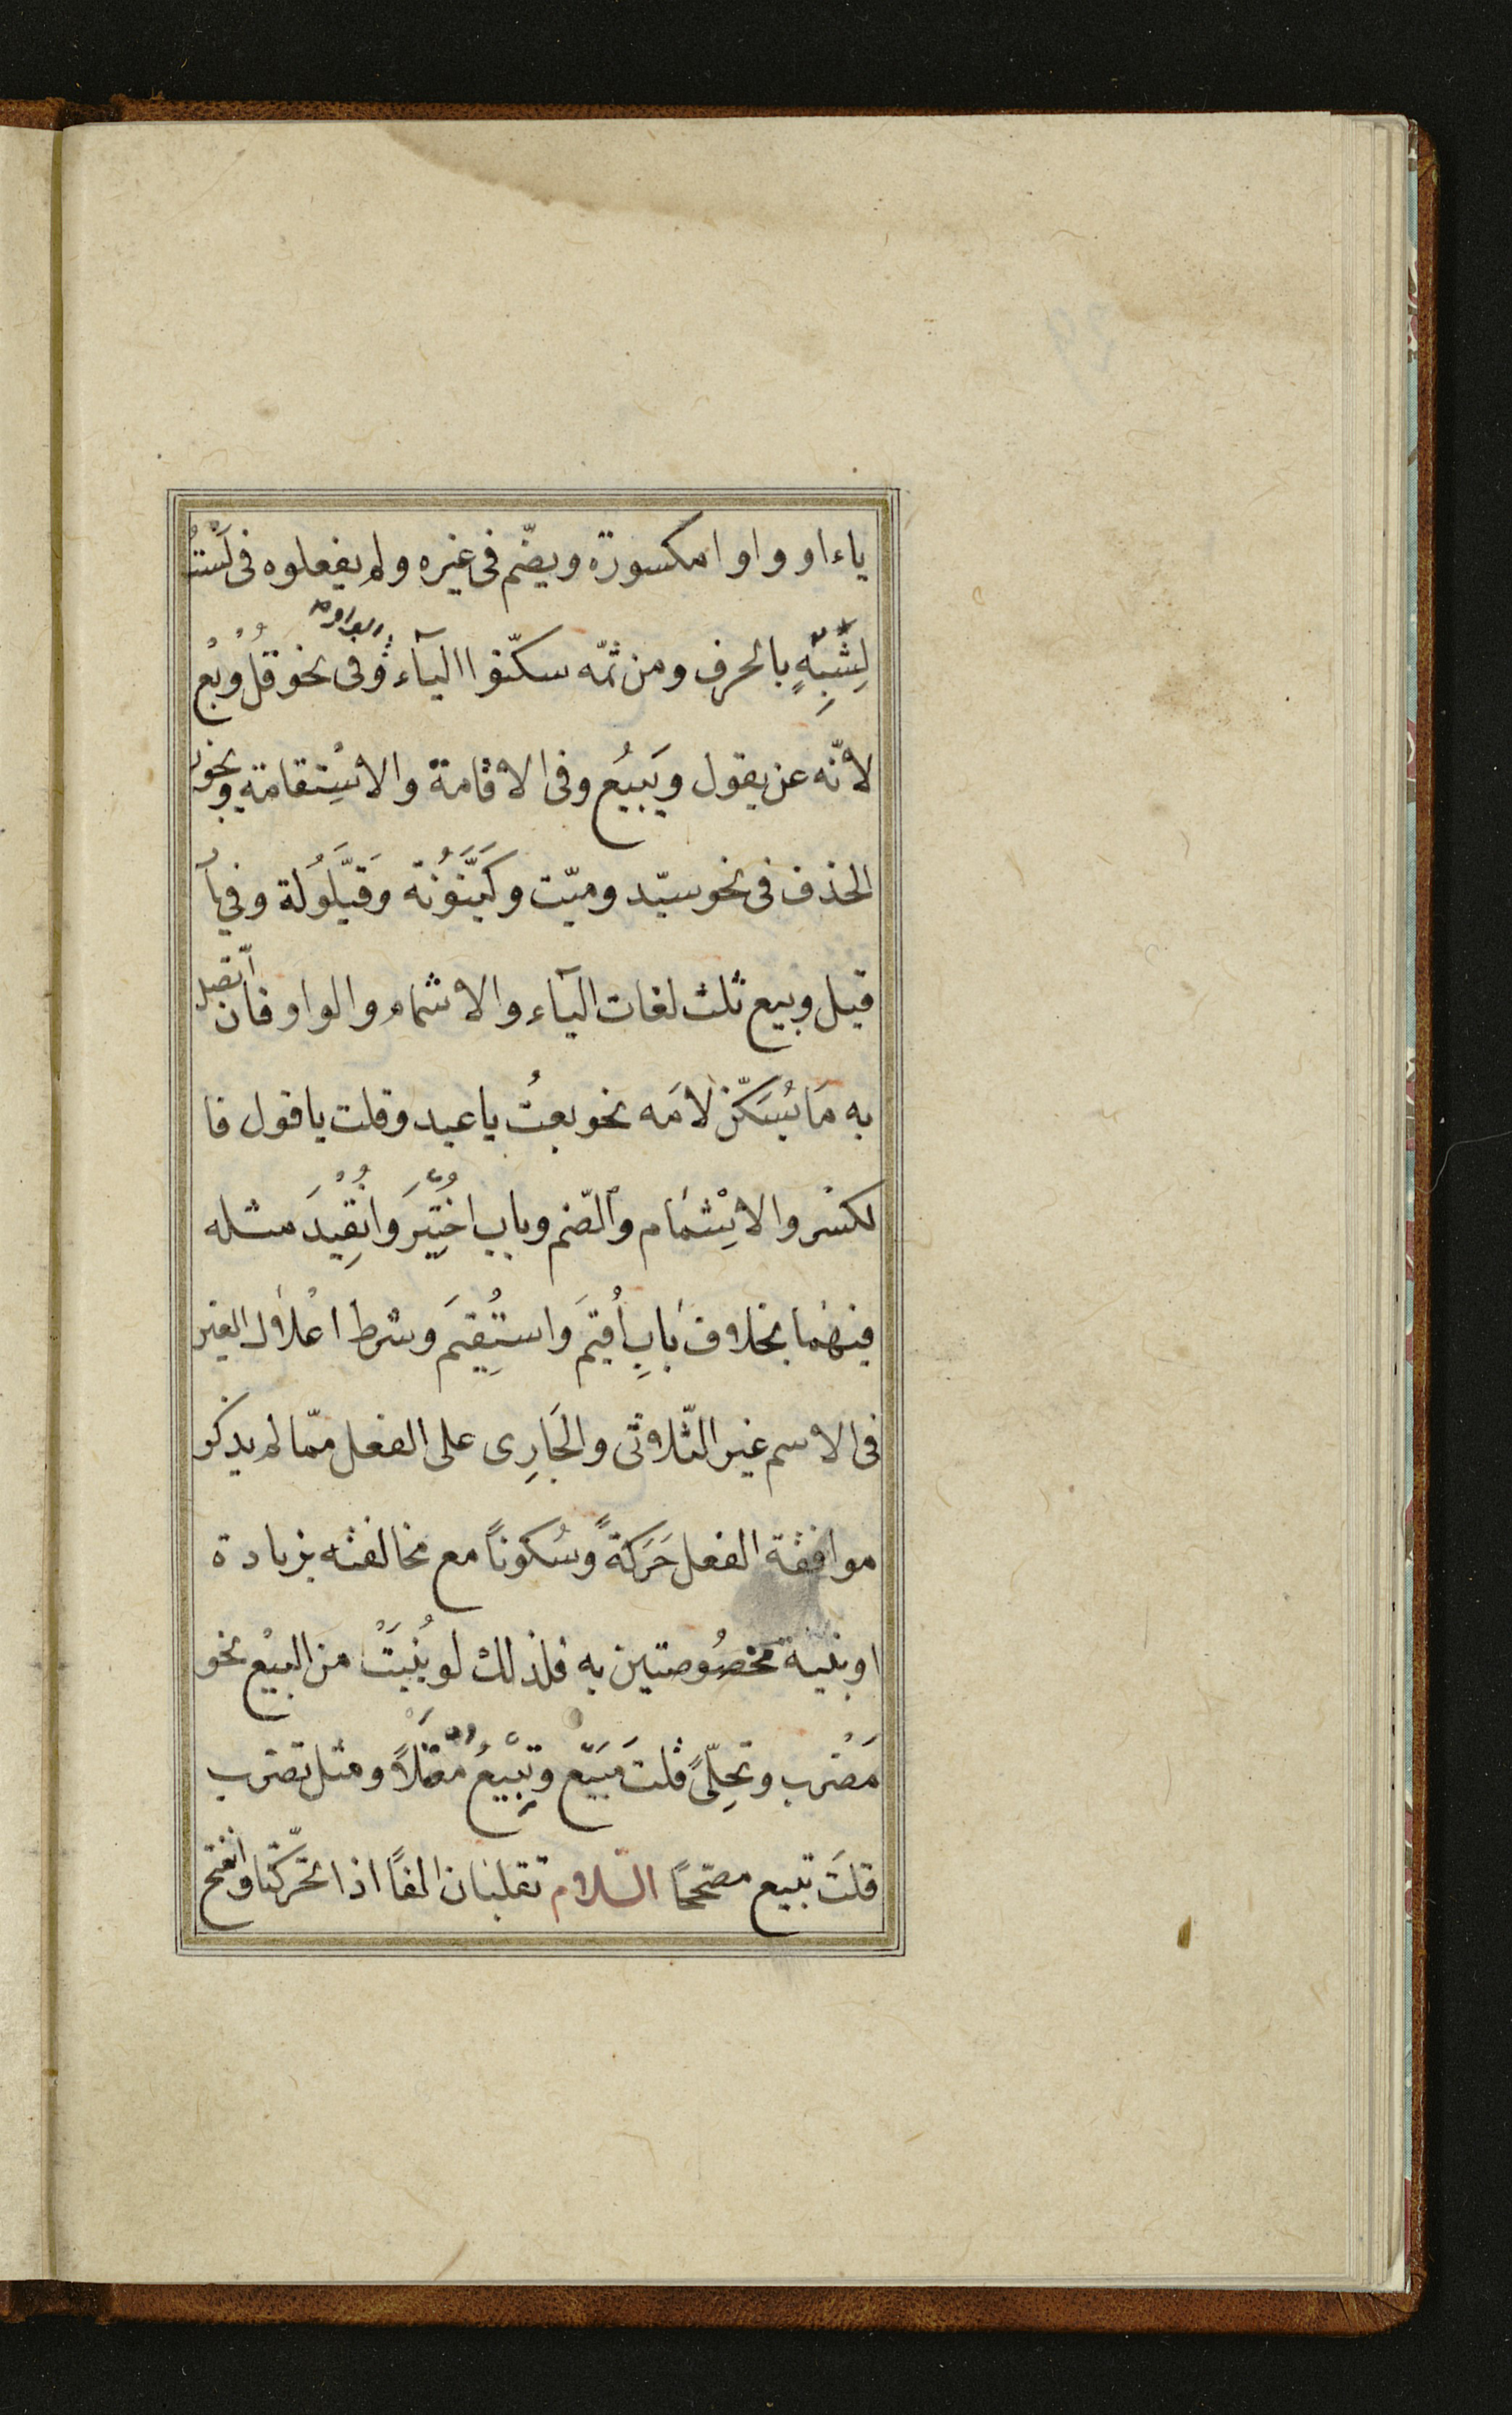 ياء او واوا مكسورة ويضم فى غيره ولم يفعلوه فى لَسْتُ
لِشِبْهِهِ بالحرف ومن ثمّه سكّنوا اليآء وفى نحو قُلْ وبِعْ
لانّه عن يقول ويَبيُع وفى الاقامة والاسْتِقامة ويجوز
الحذف فى نحو سيّد وميّت وكَيَّنُونَة وَقَيَّلُولَة وفى باَ
قيل وبيع ثلث لغات اليآء والاشمام والواو فان اتّصل
به مَا يُسَكّن لامَه نحو بعتُ يا عبد وقلت يا قول فا
لكسْر والاِشْمَام والضّم وباب اخُتِيْرَ وانُقِيْدَ مثله
فيهمَا بخلاف بَابِ اُقيَم وَاستُقِيَم وشرط اعْلاَل العين
فى الاسم غير الثّلاثى والجَارِى على الفعل ممّا لم يذكر
موافقة الفعل حَرَكةً وسُكونًا مع مخالفته بزيادة
او بنية مخصُوصتين به فلذلك لو بُنيَتْ من البيْع نحو
مَضْرب وتِحِلّىً قلت مَبَيّع وتِبْيعُ مُعَلَّلاً ومثل تضرب
قلتَ تبيع مصحّحًا اللام تقلبان الفًا اذا تحرّكتا وانفتح